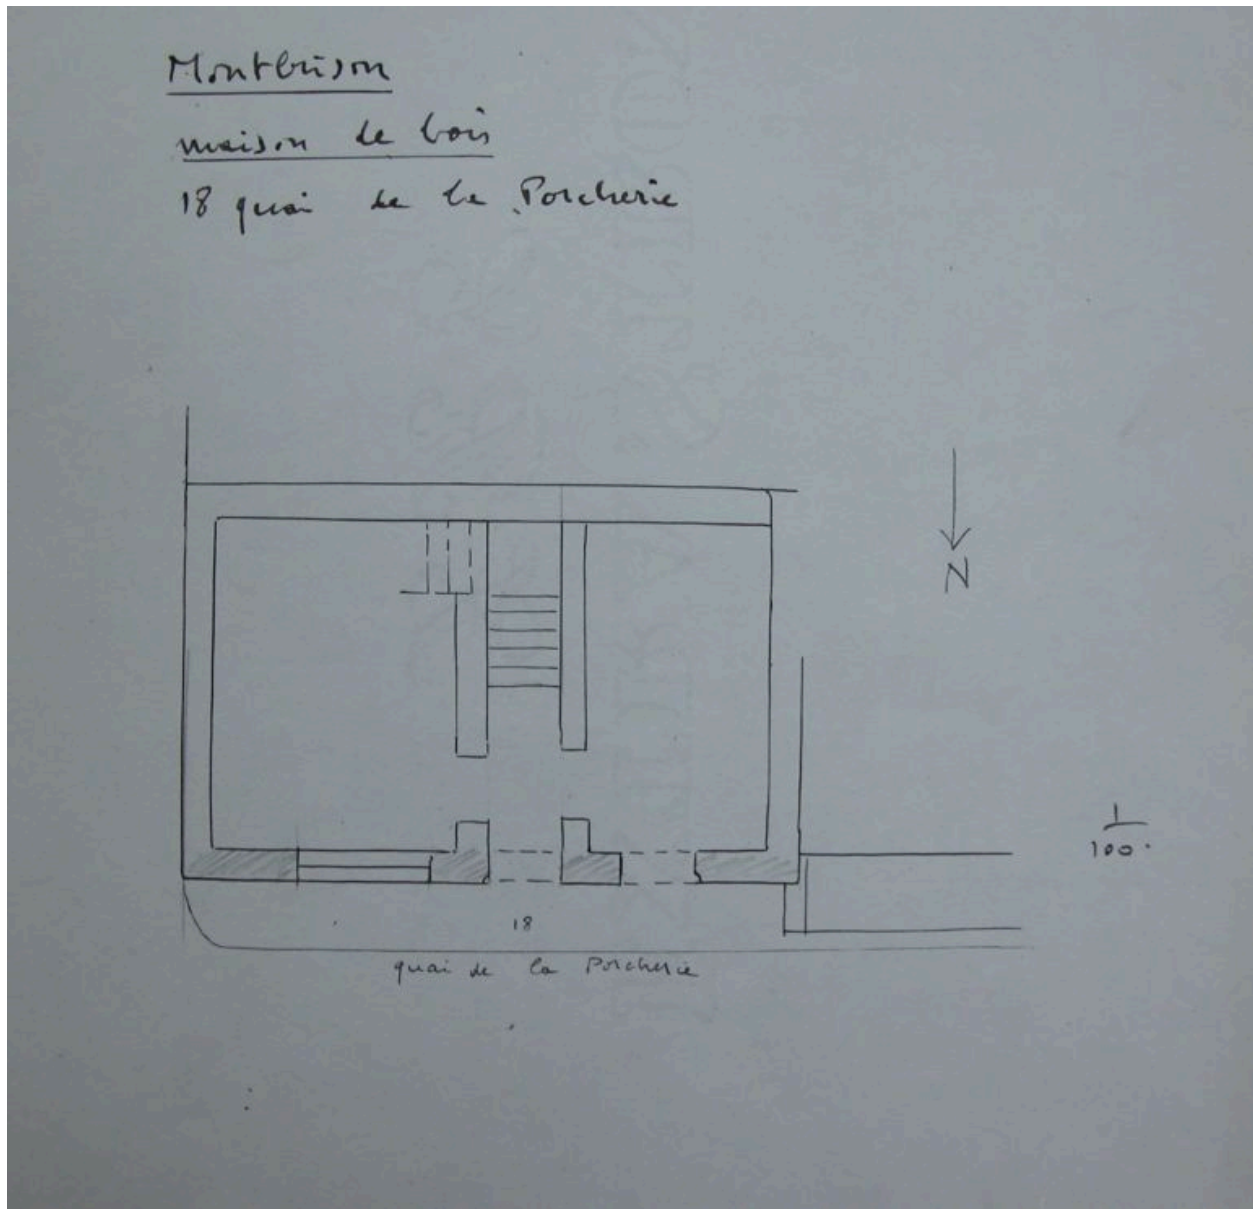 Montbrison
maison de bois
18 quai de la Porcherie
N
1
100.
18
quai de la Porcherie